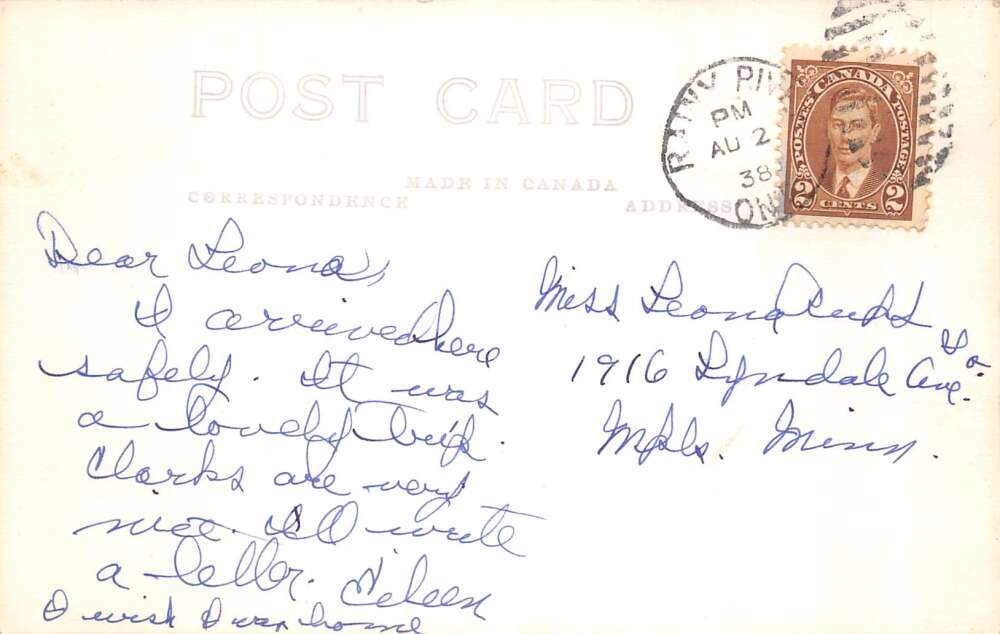 POST CARD
MADE IN CANADA
CORRESPONDENCE
ADDRESS
RAINY RIV
PM
AU 2
38
ONT
POSTES CANADA POSTAGE
2 CENTS 2
Dear Leona,
I arrived here
safely. It was
a lovely trip.
Clarks are very
nice. I'll write
a letter. Eileen
I wish I was home
Miss Leona
1916 Lyndale Ave. So.
Mpls. Minn.